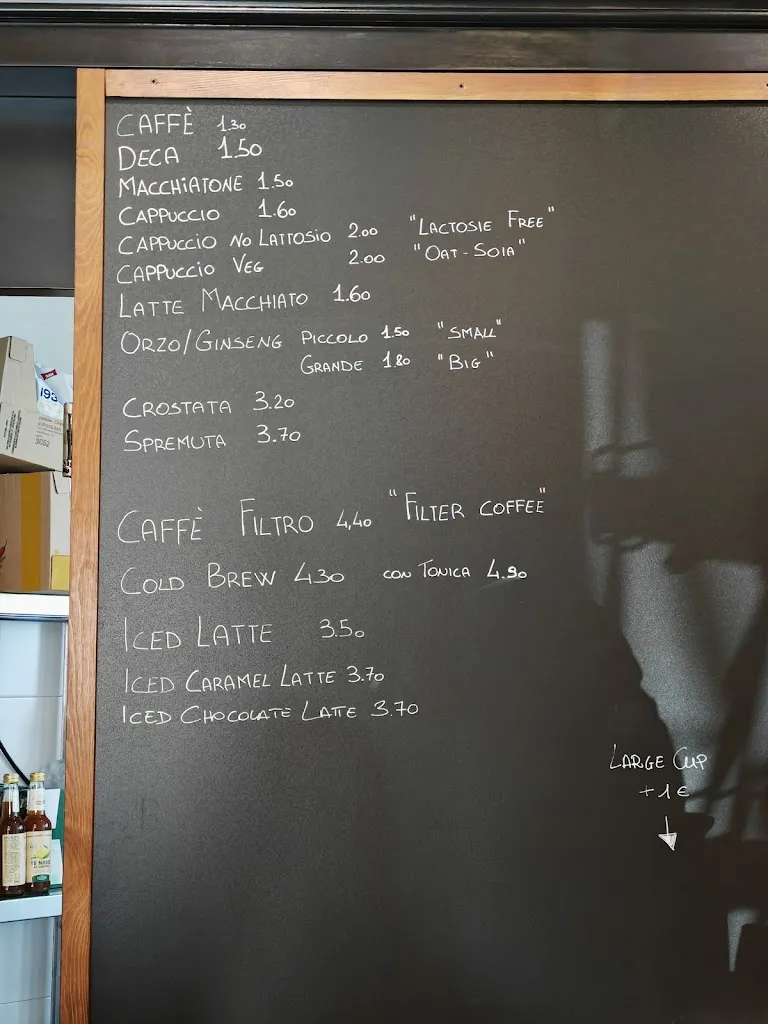 CAFFÈ 1.30
DECA 1.50
MACCHIATONE 1.50
CAPPUCCIO 1.60
CAPPUCCIO NO LATTOSIO 2.00 "LACTOSIE FREE"
CAPPUCCIO VEG 2.00 "OAT-SOIA"
LATTE MACCHIATO 1.60
ORZO/GINSENG PICCOLO 1.50 "SMALL"
GRANDE 1.80 "BIG"
CROSTATA 3.20
SPREMUTA 3.70
CAFFÈ FILTRO 4,40 "FILTER COFFEE"
COLD BREW 4.30 CON TONICA 4.90
ICED LATTE 3.50
ICED CARAMEL LATTE 3.70
ICED CHOCOLATE LATTE 3.70
LARGE CUP
+1€
193
3052